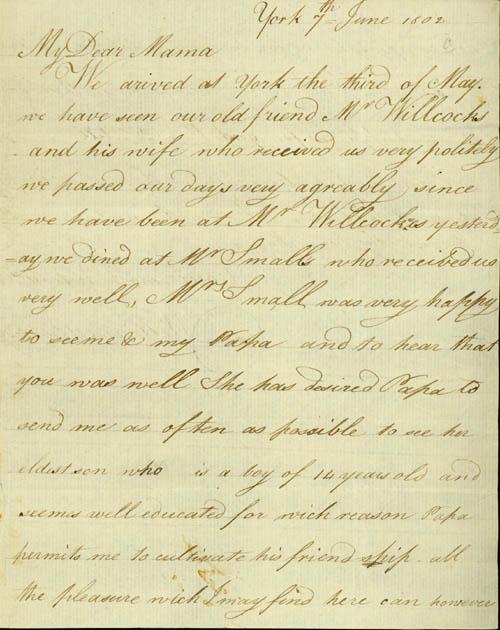 York 7th June 1802
My Dear Mama
We arived at York the third of May.
we have seen our old friend Mr Willcocks
and his wife who received us very politely
we passed our days very agreably since
we have been at Mr Willcocks yesterd
=ay we dined at Mr Smalls who received us
very well, Mrs Small was very happy
to see me & my Papa and to hear that
you was well She has desired Papa to
send me as often as possible to see her
eldest son who is a boy of 14 years old and
seems well educated for wich reason Papa
permits me to cultivate his friend ship. all
the pleasure wich I may find here can however